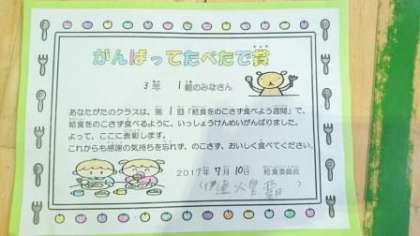 がんばってたべたで賞
3年 1組のみなさん
あなたがたのクラスは、第 1 回「給食をのこさず食べよう週間」で、
給食をのこさず食べるように、いっしょうけんめいがんばりました。
よって、ここに表彰します。
これからも感謝の気持ちを忘れず、のこさず、おいしく食べてください。
2017年 7月 10日 給食委員長